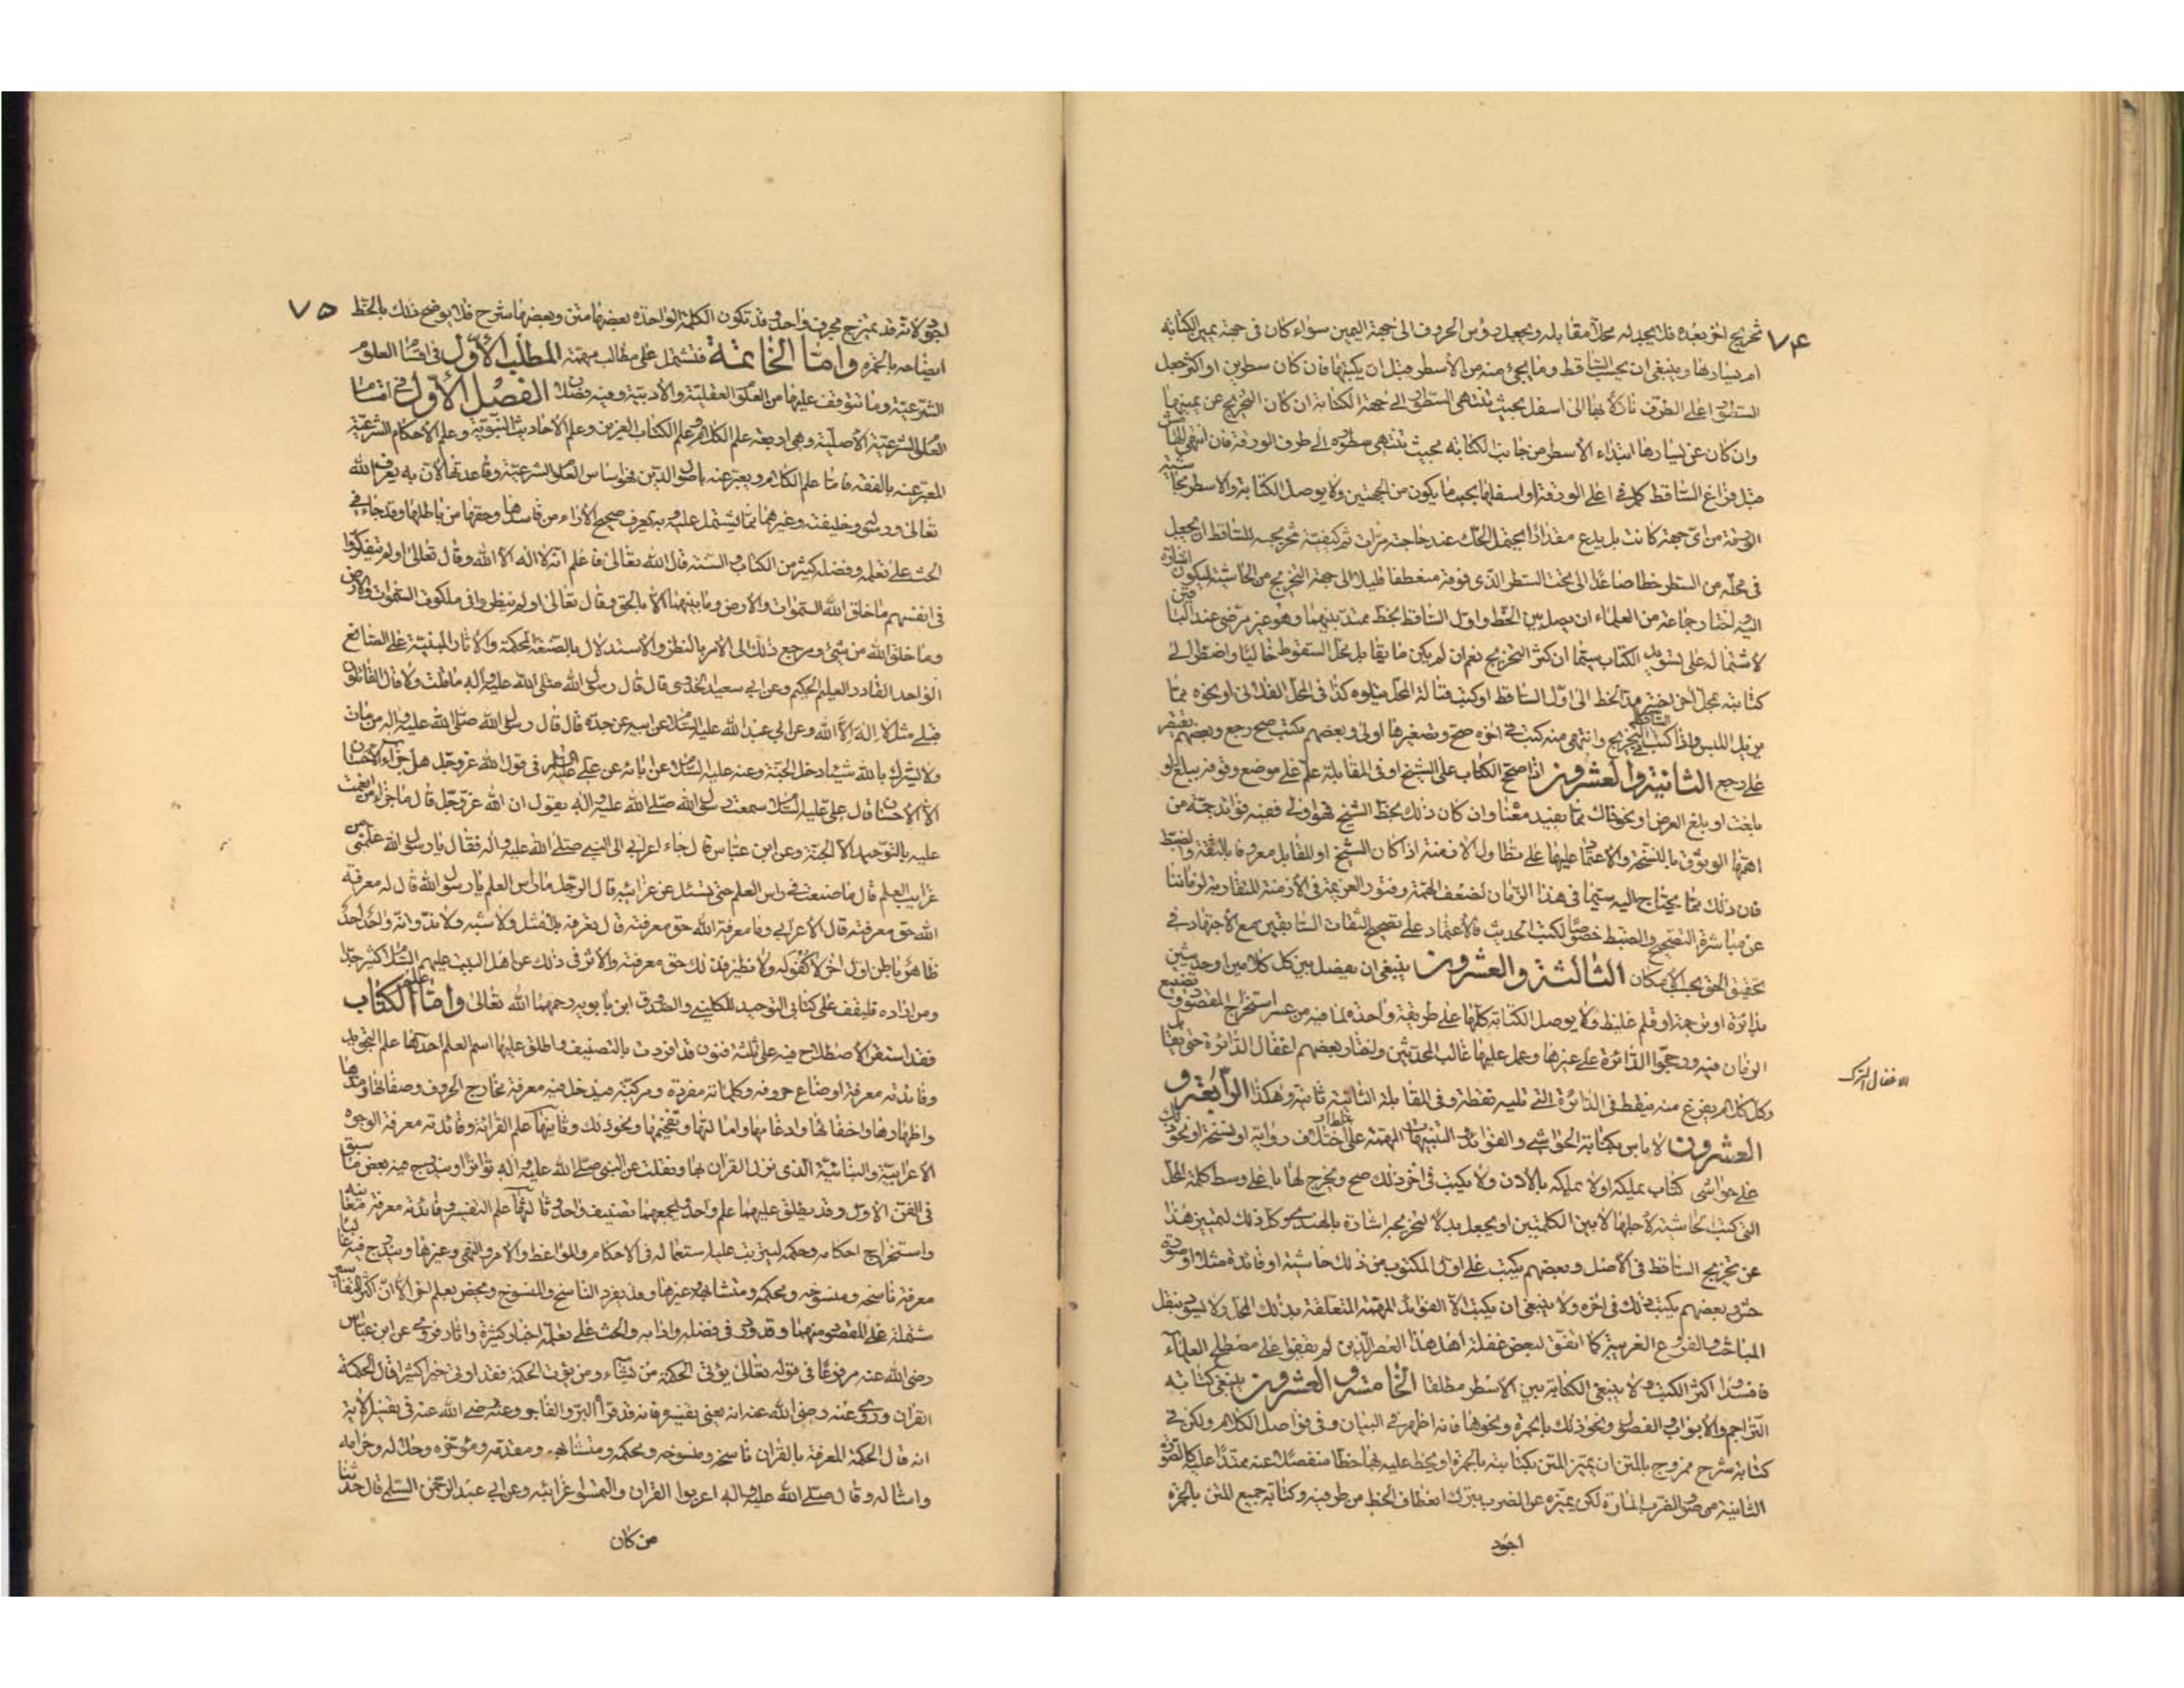 ٧٤
تخريج اخر بعده فلا يجد له محلا مقابله ويجعل رؤس الحروف الى جهة اليمين سواء كان فى جهة يمين الكتابة
ام يسارها وينبغى ان يحسب الساقط وما يجئ منه من الأسطر قبل ان يكتبها فان كان سطرين او اكثر جعل
السطور اعلى الطرف نازلا بها الى اسفل بحيث تنتهى السطور الى جهة الكتابة ان كان التخريج عن يمينها
وان كان عن يسارها ابتداء الأسطر من جانب الكتابة بحيث تنتهى سطوره الى طرف الورقة فان انتهى الهامش
قبل فراغ الساقط كمل فى اعلى الورقة او اسفلها بحسب ما يكون من الجهتين ولا يوصل الكتابة والاسطر بحاشية
الورقة من اى جهة كانت بل يدع مقدارا يحتمل الحك عند حاجته مرات ثم كيفية تخريجه للساقط ان يجعل
فى محله من السطر خطا صاعدا الى تحت السطر الذى فوقه منعطفا قليلا الى جهة التخريج من الحاشية ليكون اشارة
اليه اختار جماعة من العلماء ان يصل بين الخط واول الساقط بخط ممتد بينهما وهو غير مرضى عند الباقين
لاشتماله على تسويد الكتاب سيما ان كثر التخريج نعم ان لم يكن ما يقابل محل السقوط خاليا واضطر الى
كتابته بمحل اخر اختير مد الخط الى اول الساقط او كتب قبالة المحل يتلوه كذا فى المحل الفلانى او نحوه مما
يزيل اللبس واذا كتب التخريج الساقط وانتهى منه كتب فى اخره صح وتصغيرها اولى وبعضهم يكتب صح رجع وبعضهم يقتصر
على رجع الثانية والعشرون اذا صحح الكتاب على الشيخ او فى المقابلة علم على موضع وقوفه ببلغ او
بلغت او بلغ العرض او نحو ذلك مما يفيد معناه وان كان ذلك بخط الشيخ فهو اولى ففيه فوائد جمة من
اهمها الوثوق بالنسخة والاعتماد عليها على تطاول الازمنة اذا كان الشيخ او المقابل معروفا بالثقة والضبط
فان ذلك مما يحتاج اليه سيما فى هذا الزمان لضعف الهمة وفتور العزيمة فى الأزمنة المتقاربة لزماننا
عن مباشرة التصحيح والضبط خصوصا لكتب الحديث فالاعتماد على تصحيح الثقات السابقين مع الاجتهاد فى
تحقيق الحق بحسب الامكان الثالثة والعشرون ينبغى ان يفصل بين كل كلامين او حديثين
بدائرة او ترجمة او قلم غليظ ولا يوصل الكتابة كلها على طريقة واحدة لما فيه من عسر استخراج المقصود وتضييع
الزمان فيه ورجحوا الدائرة على غيرها وعمل عليها غالب المحدثين واختار بعضهم اغفال الدائرة حتى يقابل
وكل كلام يفرغ منه ينقط فى الدائرة التى تليه نقطة وفى المقابلة الثانية ثانية وهكذا الرابعة و
العشرون لا باس بكتابة الحواشى والفوائد والتنبيهات المهمة على غلط او اختلاف رواية او نسخة او نحو ذلك
على حواشى كتاب يملكه او لا يملكه بالاذن ولا يكتب فى اخر ذلك صح ويخرج لها باعلى وسط كلمة المحل
التى كتبت الحاشية لاجلها لا بين الكلمتين او يجعل بدلا لتخريجه اشارة بالهندى وكل ذلك ليتميز هذا
عن تخريج الساقط فى الاصل وبعضهم يكتب على اول المكتوب من ذلك حاشية او فائدة مثلا او صورة
حش وبعضهم يكتب ذلك فى اخره ولا ينبغى ان يكتب الا الفوائد المهمة المتعلقة بذلك المحل ولا يسوده بنقل
المباحث والفروع الغريبة كما اتفق لبعض غفلة اهل هذا العصر الذين لم يقفوا على مصطلح العلماء
فافسدوا اكثر الكتب ولا ينبغى الكتابة بين الاسطر مطلقا الخامسة والعشرون ينبغى كتابة
التراجم والابواب والفصول ونحو ذلك بالحمرة ونحوها فانه اظهر فى البيان وفى فواصل الكلام ولكن فى
كتابة شرح ممزوج بالمتن ان يميز المتن بكتابته بالحمرة او يخط عليه بها خطا منفصلا عنه ممتدا عليه كالصورة
الثانية من صور الضرب المارة لكى يميزه عن المضروب بترك انعطاف الخط من طرفيه وكتابة جميع المتن بالحمرة
اجود
الاغفال الترك
٧٥
اجود لانه قد يمتزج بحرف واحد وقد تكون الكلمة الواحدة بعضها متن وبعضها شرح فلا يوضح ذلك بالخط
ايضاحه بالحمرة واما الخاتمة فتشتمل على مطالب مهمة المطلب الاول فى اقسام العلوم
الشرعية وما تتوقف عليها من العلوم العقلية والادبية وفيه فصلان الفصل الاول فى اقسام
العلوم الشرعية الاصلية وهى اربعة علم الكلام وعلم الكتاب العزيز وعلم الأحاديث النبوية وعلم الأحكام الشرعية
المعبر عنه بالفقه فاما علم الكلام ويعبر عنه باصول الدين فهو اساس العلوم الشرعية وقاعدتها لان به يعرف الله
تعالى ورسوله وخليفته وغيرهما مما يشتمل عليه وبه يعرف صحيح الآراء من فاسدها وحقها من باطلها وقد جاء فى
الحث على تعلمه وفضله كثير من الكتاب والسنة قال الله تعالى فاعلم انه لا اله الا الله وقال تعالى اولم يتفكروا
فى انفسهم ما خلق الله السموات والارض وما بينهما الا بالحق وقال تعالى اولم ينظروا فى ملكوت السموات والارض
وما خلق الله من شئ ومرجع ذلك الى الامر بالنظر والاستدلال بالصنعة المحكمة والاثار المتقنة على الصانع
الواحد القادر العليم الحكيم وعن ابى سعيد الخدرى قال قال رسول الله صلى الله عليه واله ما قلت ولا قال القائلون
قبلى مثل لا اله الا الله وعن ابى عبد الله عليه السلام عن ابيه عن جده قال قال رسول الله صلى الله عليه واله من مات
ولا يشرك بالله شيئا دخل الجنة وعنه عليه السلام عن ابائه عن على عليه السلام فى قول الله عز وجل هل جزاء الاحسان
الا الاحسان قال على عليه السلام سمعت رسول الله صلى الله عليه واله يقول ان الله عز وجل قال ما جزاء من انعمت
عليه بالتوحيد الا الجنة وعن ابن عباس قال جاء اعرابى الى النبى صلى الله عليه واله فقال يا رسول الله علمنى من
غرايب العلم قال ما صنعت فى راس العلم حتى تسئل عن غرائبه قال الرجل ما راس العلم يا رسول الله قال له معرفة
الله حق معرفته قال الأعرابى وما معرفة الله حق معرفته قال تعرفه بلا مثل ولا شبه ولا ند وانه واحد احد
ظاهر باطن اول اخر لا كفو له ولا نظير فذلك حق معرفته والاثر فى ذلك عن اهل البيت عليهم السلام كثير جدا
ومن اراده فليقف على كتابى التوحيد للكلينى والصدوق ابن بابويه رحمهما الله تعالى واما علم الكتاب
فقد استقر الاصطلاح فيه على ثلثة فنون قد افردت بالتصنيف واطلق عليها اسم العلم احدها علم التجويد
وفائدته معرفة اوضاع حروفه وكلماته مفردة ومركبة فيدخل فيه معرفة مخارج الحروف وصفاتها ومدها
واظهارها واخفائها وادغامها وامالتها وتفخيمها ونحو ذلك وثانيها علم القرائة وفائدته معرفة الوجوه
الاعرابية والبنائية الذى نزل القران بها ونقلت عن النبى صلى الله عليه واله تواترا ويندرج فيه بعض ما سبق
فى الفن الاول وقد يطلق عليهما علم واحد ويجمعهما تصنيف واحد وثالثها علم التفسير وفائدته معرفة معانيه
واستخراج احكامه وحكمه ليترتب عليه استعماله فى الاحكام والمواعظ والامر والنهى وغيرها ويندرج فيه غالبا
معرفة ناسخه ومنسوخه ومحكمه ومتشابهه وغيرها وقد يفرد الناسخ والمنسوخ ويخص بعلم اخر الا ان اكثر التفاسير
مشتملة على المقصود منهما وقد ورد فى فضله وادابه والحث على تعلمه اخبار كثيرة واثار فروى عن ابن عباس
رضى الله عنه مرفوعا فى قوله تعالى يؤتى الحكمة من يشاء ومن يؤت الحكمة فقد اوتى خيرا كثيرا قال الحكمة
القران وروى عنه رضى الله عنه انه يعنى تفسيره فانه قد قرأ البر والفاجر وعنه رضى الله عنه فى تفسير الاية
انه قال الحكمة المعرفة بالقران ناسخه ومنسوخه ومحكمه ومتشابهه ومقدمه ومؤخره وحلاله وحرامه
وامثاله وقال صلى الله عليه واله اعربوا القران والتمسوا غرائبه وعن ابى عبد الرحمن السلمى قال حدثنا
من كان